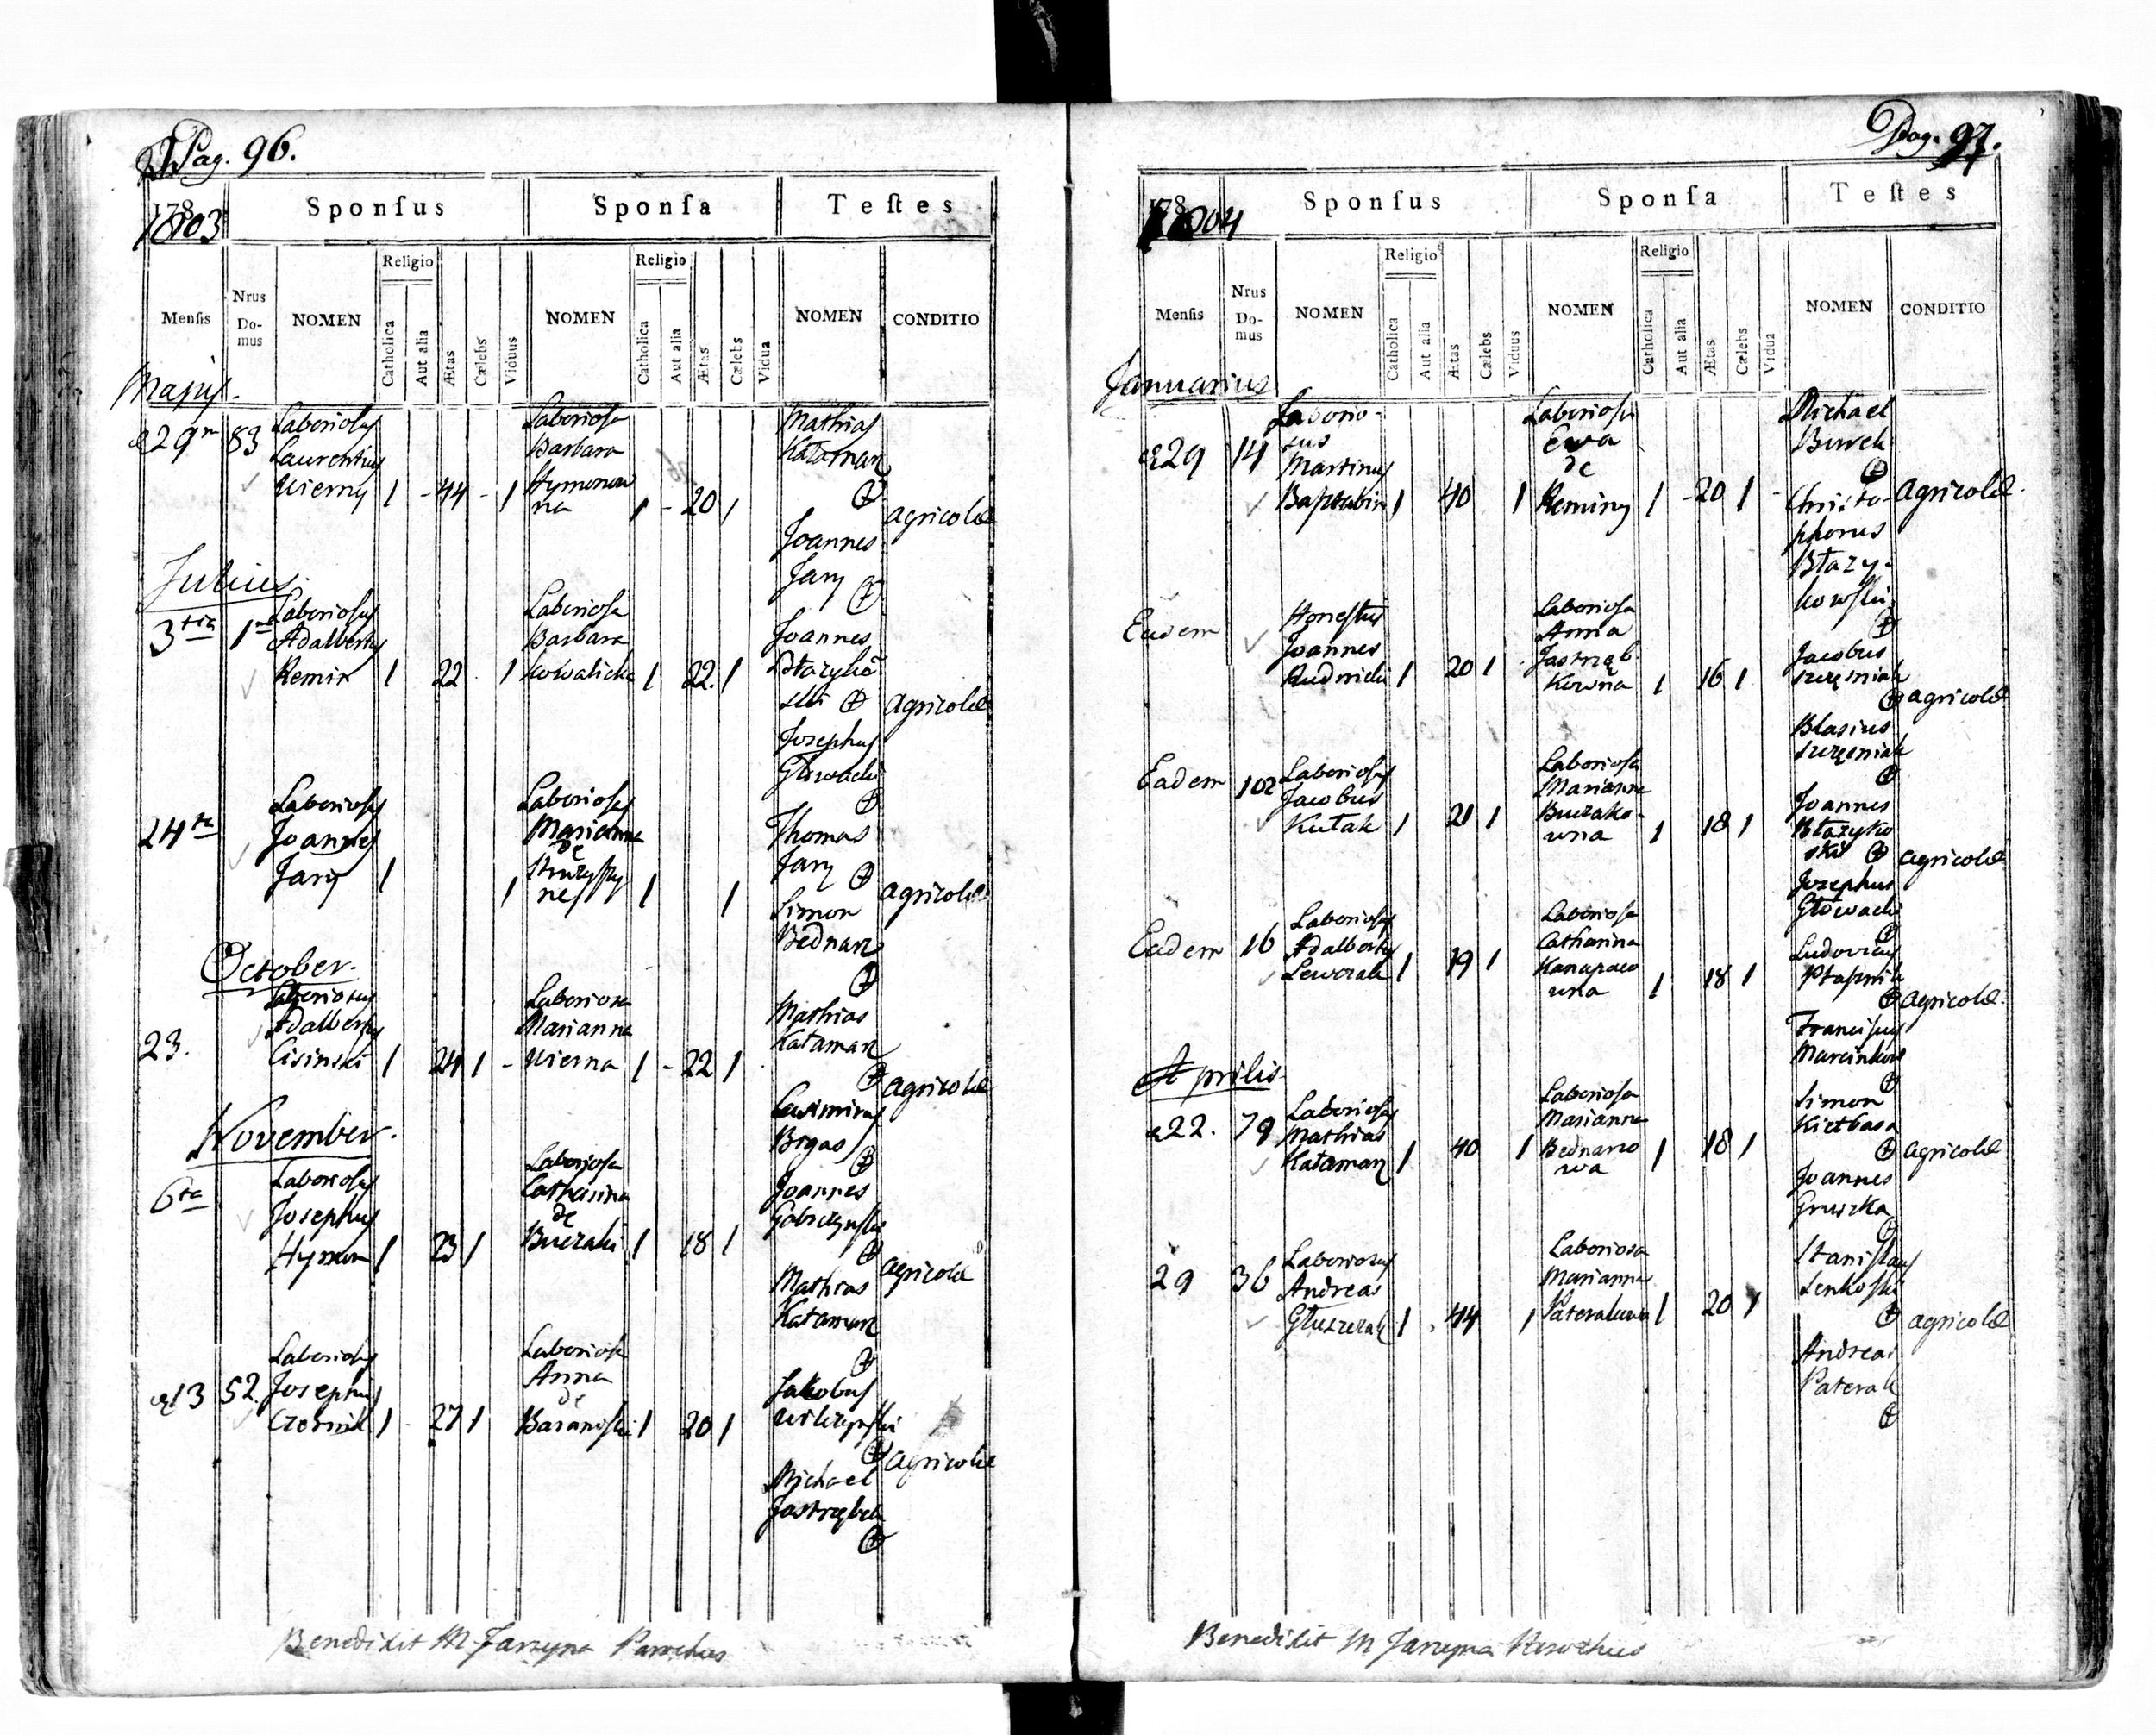 Pag. 96.
1803
Sponſus
Sponſa
Teſtes
Menſis
Nrus Do-mus
NOMEN
Religio
Catholica
Aut alia
Ætas
Cælebs
Viduus
NOMEN
Religio
Catholica
Aut alia
Ætas
Cælebs
Vidua
NOMEN
CONDITIO
Majus
29 83 Laboriosus Laboriosa Mathias
Laurentius Barbara Kataman
Wierny 1 - 44 - 1 Hymonow
na 1 - 20 1 agricolæ
Joannes
Jary
Julius
3tia 1 Laboriosus Laboriosa
Adalbertus Barbara Joannes
Remin 1 22 1 Kowalicha 1 22 1 Błazyko
ski agricolæ
Josephus
Głowacki
Laboriosus Laboriosa
24ta Joannes Marianna Thomas
de Jary
Jary 1 1 1 1 Simon agricolæ
Bednarz
October
Laboriosus Laboriosa
Adalbertus Marianna Mathias
23. Cisinski 1 24 1 - Wierna 1 - 22 1 Kataman
agricolæ
Casimirus
Bigas
November.
6ta Laboriosus Laboriosa
Josephus Catharina Joannes
de
Hymon 1 23 1 Buczaki 1 18 1
agricolæ
Mathias
Kataman
Laboriosus Laboriosa
13 52. Josephus Anna Jakobus
de
Czernik 1 - 27 1 Baranoski 1 20 1 Wilczynski
agricolæ
Michael
Jastrzębek
Benedikit M Jarzyna Parochus
Pag. 97.
1804
Sponſus
Sponſa
Teſtes
Menſis
Nrus Do-mus
NOMEN
Religio
Catholica
Aut alia
Ætas
Cælebs
Viduus
NOMEN
Religio
Catholica
Aut alia
Ætas
Cælebs
Vidua
NOMEN
CONDITIO
Januarius
Laborio- Laboriosa Michael
29 14 sus Ewa Burek
Martinus de
40 1 Reminy 1 - 20 1 - Christo- agricolæ
phorus
Błazy-
kowski
Honestus Laboriosa
Eadem Joannes Anna Jacobus
Rudnicki 1 20 1 Jastrząb
kowna 1 16 1 agricolæ
Blasius
Szczęsniak
Eadem 102 Laboriosus Laboriosa
Jacobus Marianna Joannes
Kutak 1 21 1 Buczako-
wna 1 18 1 Błazyko
ski agricolæ
Josephus
Głowacki
Eadem 16 Laboriosus Laboriosa
Adalbertus Catharina Ludovicus
Lewczak 1 19 1 Kanapaco
wna 1 18 1 agricolæ
Franciscus
Aprilis
22. 79 Laboriosus Laboriosa Simon
Mathias Marianna Kiełbasa
Kataman 1 40 1 Bednarzo
wa 1 18 1 agricolæ
Joannes
Gruszka
29 36 Laboriosus Laboriosa Stanislaus
Andreas Marianna Senkoski
Głuszczak 1 . 44 1 Paterakowa 1 20 1 agricolæ
Andreas
Paterak
Benedikit M Jarzyna Parochus